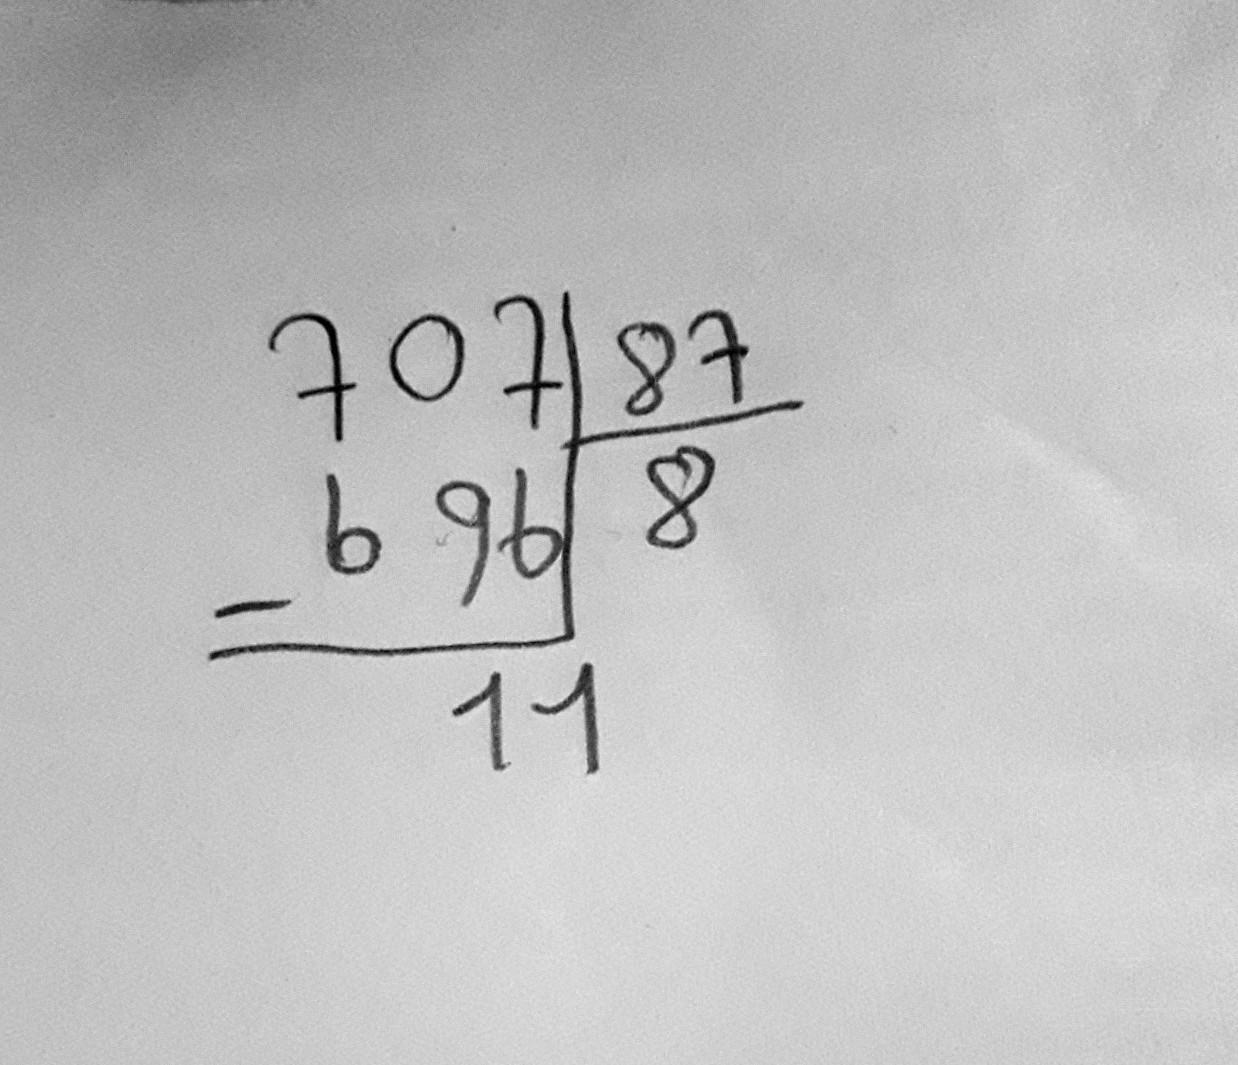 707 87
696 8
-
11